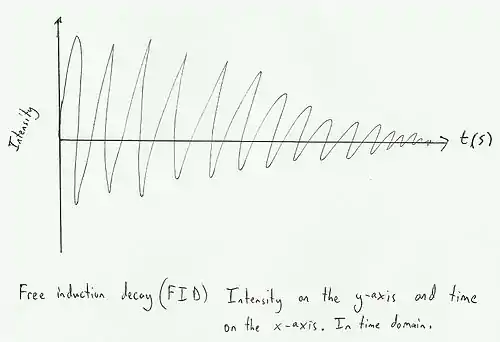 Intensity
t(s)
Free induction decay (FID) Intensity on the y-axis and time
on the x-axis. In time domain.